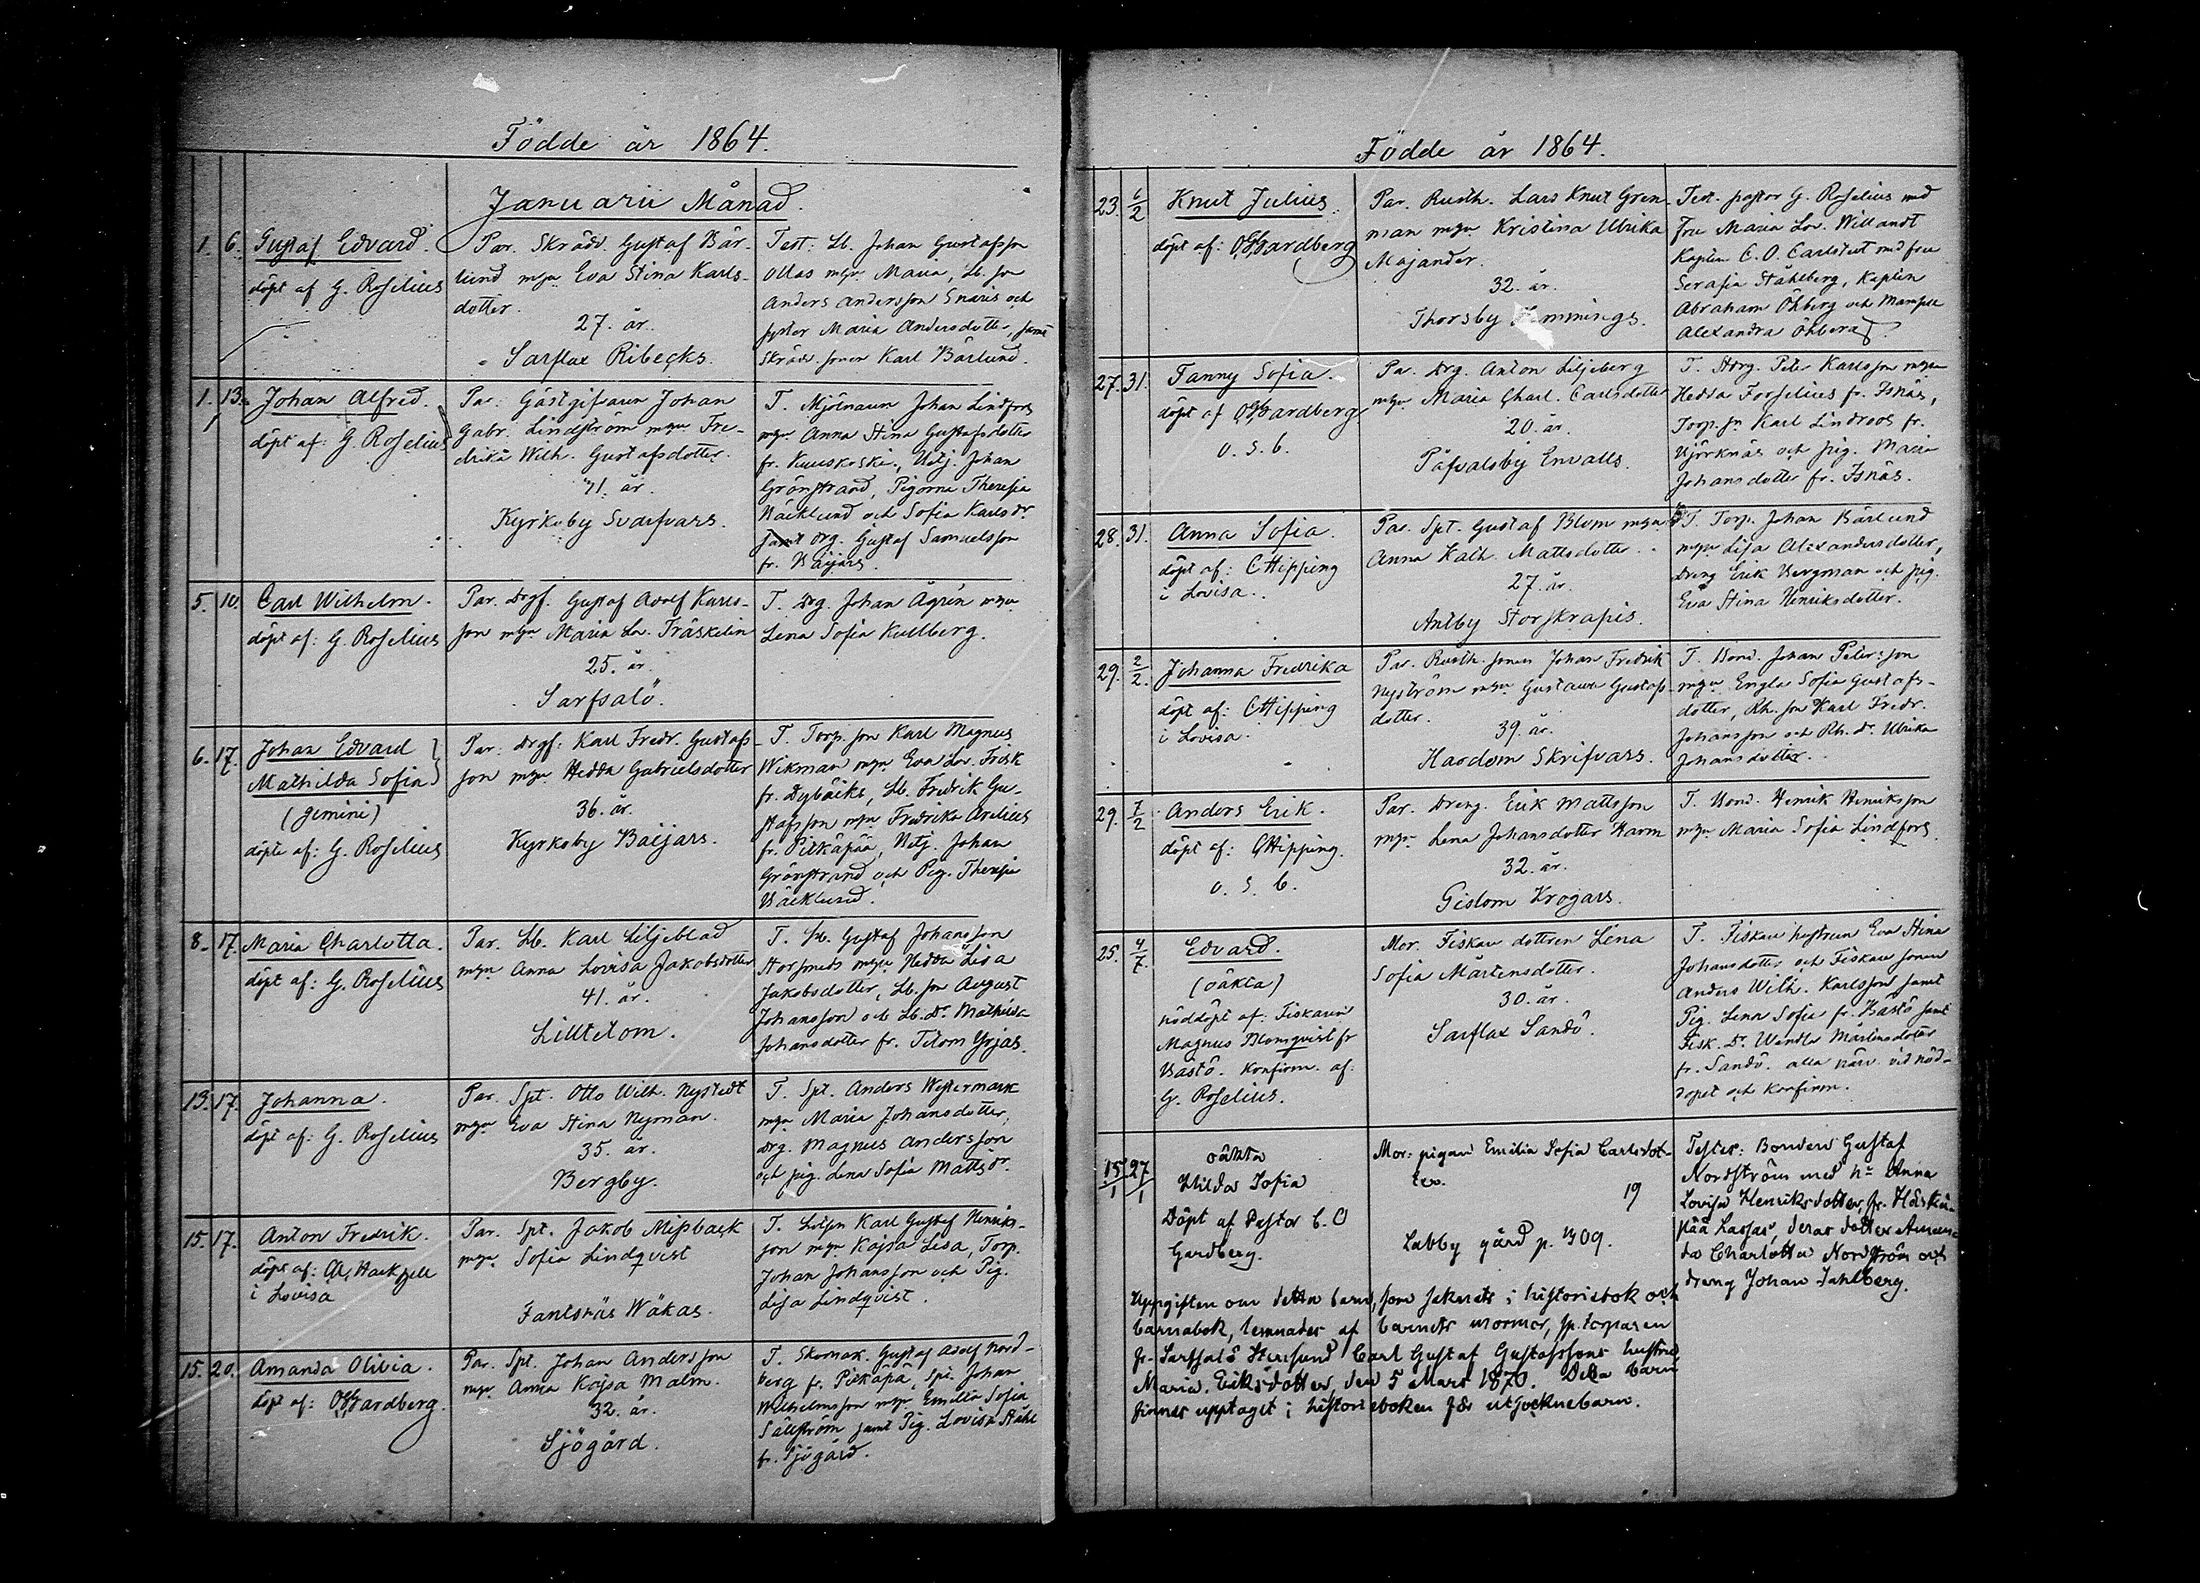 Födde år 1864.
Januarii Månad.
1. 6. Gustaf Edvard.
döpt af G. Roselius
Par. Skrädd. Gustaf Bär-
lund m. hu Eva Stina Karls-
dotter.
27. år.
Sarflax Ribecks.
Test. Lb. Johan Gustafsson
Ollas m. hu Maria, Lb. son
Anders Andersson Snaris och
syster Maria Andersdotter, samt
Skrädd. sonen Karl Bärlund.
1. 13. Johan Alfred.
döpt af: G. Roselius
Par: Gästgifvaren Johan
Gabr. Lindström m. hu Fre-
drika Wilh. Gustafsdotter.
41. år.
Kyrkoby Svarfvars.
T. Mjölnaren Johan Lindfors
m. hu Anna Stina Gustafsdotter
fr. Kuuskoski, Johan
Grönstrand, Pigorna Theresia
Bäcklund och Sofia Karlsdr.
samt drg. Gustaf Samuelsson
fr. Baijars.
5. 10. Carl Wilhelm.
döpt af: G. Roselius
Par. Drgf. Gustaf Adolf Karls-
son m. hu Maria Lov. Träskelin
25. år.
Sarfsalö.
T. Drg. Johan Ågrén m. hu
Lena Sofia Kullberg.
6. 17. Johan Edvard
Mathilda Sofia
(gemini)
döpte af: G. Roselius
Par: Drgf. Karl Fredr. Gustafs-
son m. hu Hedda Gabrielsdotter
36. år.
Kyrkoby Baijars.
T. Torp. son Karl Magnus
Wikman m. hu Eva Lov. Frisk
fr. Dybäcks, Lb. Fredrik Gu-
stafsson m. hu Fredrika Arelius
fr. Pitkäpää, Johan
Grönstrand och Pig. Theresia
Bäcklund.
8. 17. Maria Charlotta.
döpt af: G. Roselius
Par. Lb. Karl Liljeblad
m. hu Anna Lovisa Jakobsdotter
41. år.
Lilltetom.
T. Lb. Gustaf Johansson
Storsmeds m. hu Hedda Lisa
Jakobsdotter, Lb. son August
Johansson och Lb. Dr. Mathilda
Johansdotter fr. Tetom Yrjas.
13. 17. Johanna.
döpt af: G. Roselius
Par. Spt. Otto Wilh. Nystedt
m. hu Eva Stina Nyman.
35. år.
Bergby.
T. Spt. Anders Westermark
m. hu Maria Johansdotter,
drg. Magnus Andersson
och pig. Lena Sofia Mattsdr.
15. 17. Anton Fredrik.
döpt af: Hackzell
i Lovisa
Par. Spt. Jakob Missback
m. hu Sofia Lindqvist
Fantsnäs Wäkas.
T. Karl Gustaf Henriks-
son m. hu Kajsa Lisa, Torp.
Johan Johansson och Pig.
Lisa Lindqvist.
15. 20. Amanda Olivia.
döpt af: Gardberg.
Par. Spt. Johan Andersson
m. hu Anna Kajsa Malm.
32. år.
Sjögård.
T. Skomak. Gustaf Adolf Nord-
berg fr. Pitkäpä, Spt. Johan
Wilhelmsson m. hu Emilia Sofia
Sällström samt Pig. Lovisa Ståhl
fr. Sjögård.
Födde år 1864.
23. 6/2 Knut Julius.
döpt af: Gardberg
Par. Rusth. Lars Knut Gren-
man m. hu Kristina Ulrika
Majander.
32. år.
Thorsby Hemmings.
Test. pastor G. Roselius med
Fru Maria Lov. Willandt
Kapten C. O. Carlstedt med fru
Serafia Ståhlberg, Kapten
Abraham Öhberg och Mamsell
Alexandra Öhberg.
27. 31. Fanny Sofia.
döpt af Gardberg
o. s. b.
Par. Drg. Anton Liljeberg
m. hu Maria Charl. Carlsdotter
20. år.
Påfvalsby Envalls.
T. Peter Karlsson m. hu
Hedda Forselius fr. Isnäs,
Torp. sn Karl Lindroos fr.
Björknäs och pig. Maria
Johansdotter fr. Isnäs.
28. 31. Anna Sofia.
döpt af: Hipping
i Lovisa.
Par. Spt. Gustaf Blom m. hu
Anna Kath. Mattsdotter.
27. år.
Antby Storskrapis.
T. Torp. Johan Bärlund
m. hu Lisa Alexandersdotter,
Dreng Erik Bergman och pig.
Eva Stina Henriksdotter.
29. 2/2. Johanna Fredrika
döpt af: Hipping
i Lovisa.
Par. Rusth. sonen Johan Fredrik
Nyström m. hu Gustava Gustafs-
dotter.
39. år.
Hardom Skrifvars.
T. Bond. Johan Petersson
m. hu Engla Sofia Gustafs-
dotter, Rh. son Karl Fredr.
Johansson och Rh. dr. Ulrika
Johansdotter.
29. 7/2 Anders Erik.
döpt af: Hipping.
o. s. b.
Par. Dreng. Erik Mattsson
m. hu Lena Johansdotter Harm
32. år.
Gislom Krogars.
T. Bond. Henrik Henriksson
m. hu Maria Sofia Lindfors.
25. 4/7. Edvard.
(oäkta)
nöddöpt af: Fiskaren
Magnus Blomqvist fr
Båstö. Konfirm. af:
G. Roselius.
Mor. Fiskare dottren Lena
Sofia Mårtensdotter.
30. år.
Sarflax Sandö.
T. Fiskare hustrun Eva Stina
Johansdotter och Fiskare sonen
Anders Wilh. Karlsson samt
Pig. Lena Sofia fr. Båstö samt
Fisk. Dr. Wendla Mårtensdotter
fr. Sandö. alla närv. vid nöd-
dopet och konfirm.
15/1 27/1 oäkta
Hilda Sofia
Döpt af Pastor C. O
Gardberg.
Mor: pigan Emilia Sofia Carlsdot-
ter.
19
Labby gård p. 309.
Testes: Bonden Gustaf
Nordström med h. Anna
Lovisa Henriksdotter, fr. Härkä-
pää Lassas, deras dotter Aman-
da Charlotta Nordström och
dreng Johan Dahlberg.
Uppgiften om detta barn, som saknats i historiebok och
barnabok, lemnades af barnets mormor, sp. torparen
fr. Sarfsalö Hersund Carl Gustaf Gustafssons hustru
Maria Eriksdotter, den 5 Mars 1870. Detta barn
finnes upptaget i historieboken för utsocknebarn.